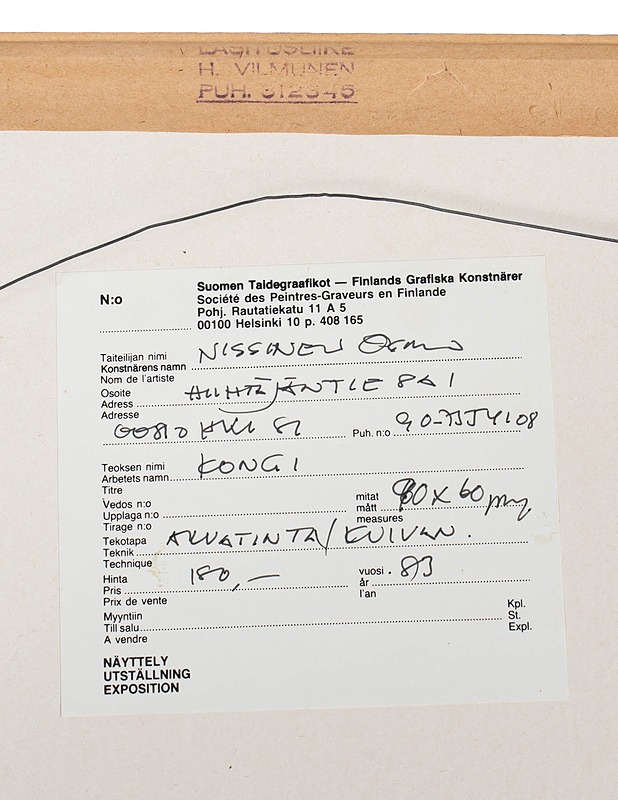 H. VILMUNEN
PUH.
N:o
Suomen Taidegraafikot — Finlands Grafiska Konstnärer
Société des Peintres-Graveurs en Finlande
Pohj. Rautatiekatu 11 A 5
00100 Helsinki 10 p. 408 165
Taiteilijan nimi NISSINEN
Konstnärens namn
Nom de l'artiste
Osoite
Adress
Adresse
Puh. n:o
Teoksen nimi KONGI
Arbetets namn
Titre
Vedos n:o mitat 60 pmy
Upplaga n:o mått
Tirage n:o measures
Tekotapa AKVATINTA/KUIVAN.
Teknik
Technique
Hinta 180,— vuosi. 83
Pris år
Prix de vente l'an
Myyntiin Kpl.
Till salu St.
A vendre Expl.
NÄYTTELY
UTSTÄLLNING
EXPOSITION